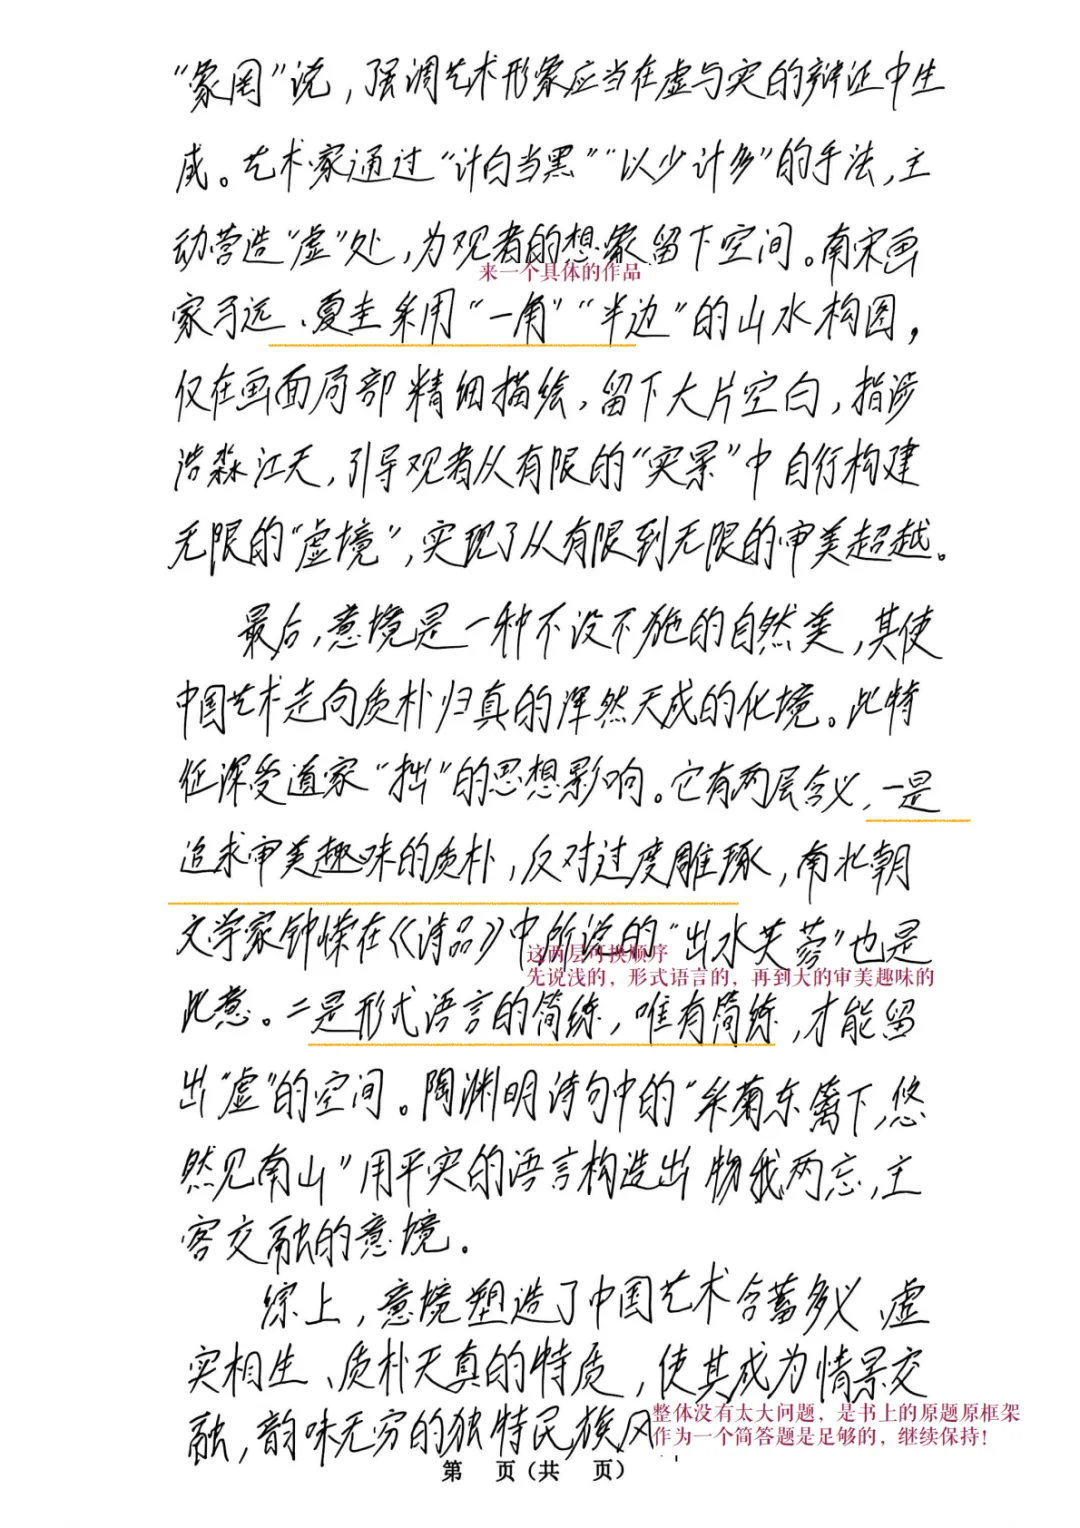 “象罔”说，强调艺术形象应当在虚与实的辩证中生
成。艺术家通过“计白当黑”“以少计多”的手法，主
动营造“虚”处，为观者的想象留下空间。南宋画
来一个具体的作品
家马远、夏圭采用“一角”“半边”的山水构图，
仅在画面局部精细描绘，留下大片空白，指涉
浩淼江天，引导观者从有限的“实景”中自行构建
无限的“虚境”，实现了从有限到无限的审美超越。
最后，意境是一种不设不施的自然美，其使
中国艺术走向质朴归真的浑然天成的化境。此特
征深受道家“拙”的思想影响。它有两层含义，一是
追求审美趣味的质朴，反对过度雕琢，南北朝
文学家钟嵘在《诗品》中所说的“出水芙蓉”也是
这两层可换顺序
先说浅的，形式语言的，再到大的审美趣味的
此意。二是形式语言的简练，唯有简练，才能留
出“虚”的空间。陶渊明诗句中的“采菊东篱下，悠
然见南山”用平实的语言构造出物我两忘，主
客交融的意境。
综上，意境塑造了中国艺术含蓄多义、虚
实相生、质朴天真的特质，使其成为情景交
融，韵味无穷的独特民族风
整体没有太大问题，是书上的原题原框架
作为一个简答题是足够的，继续保持！
第 页（共 页）